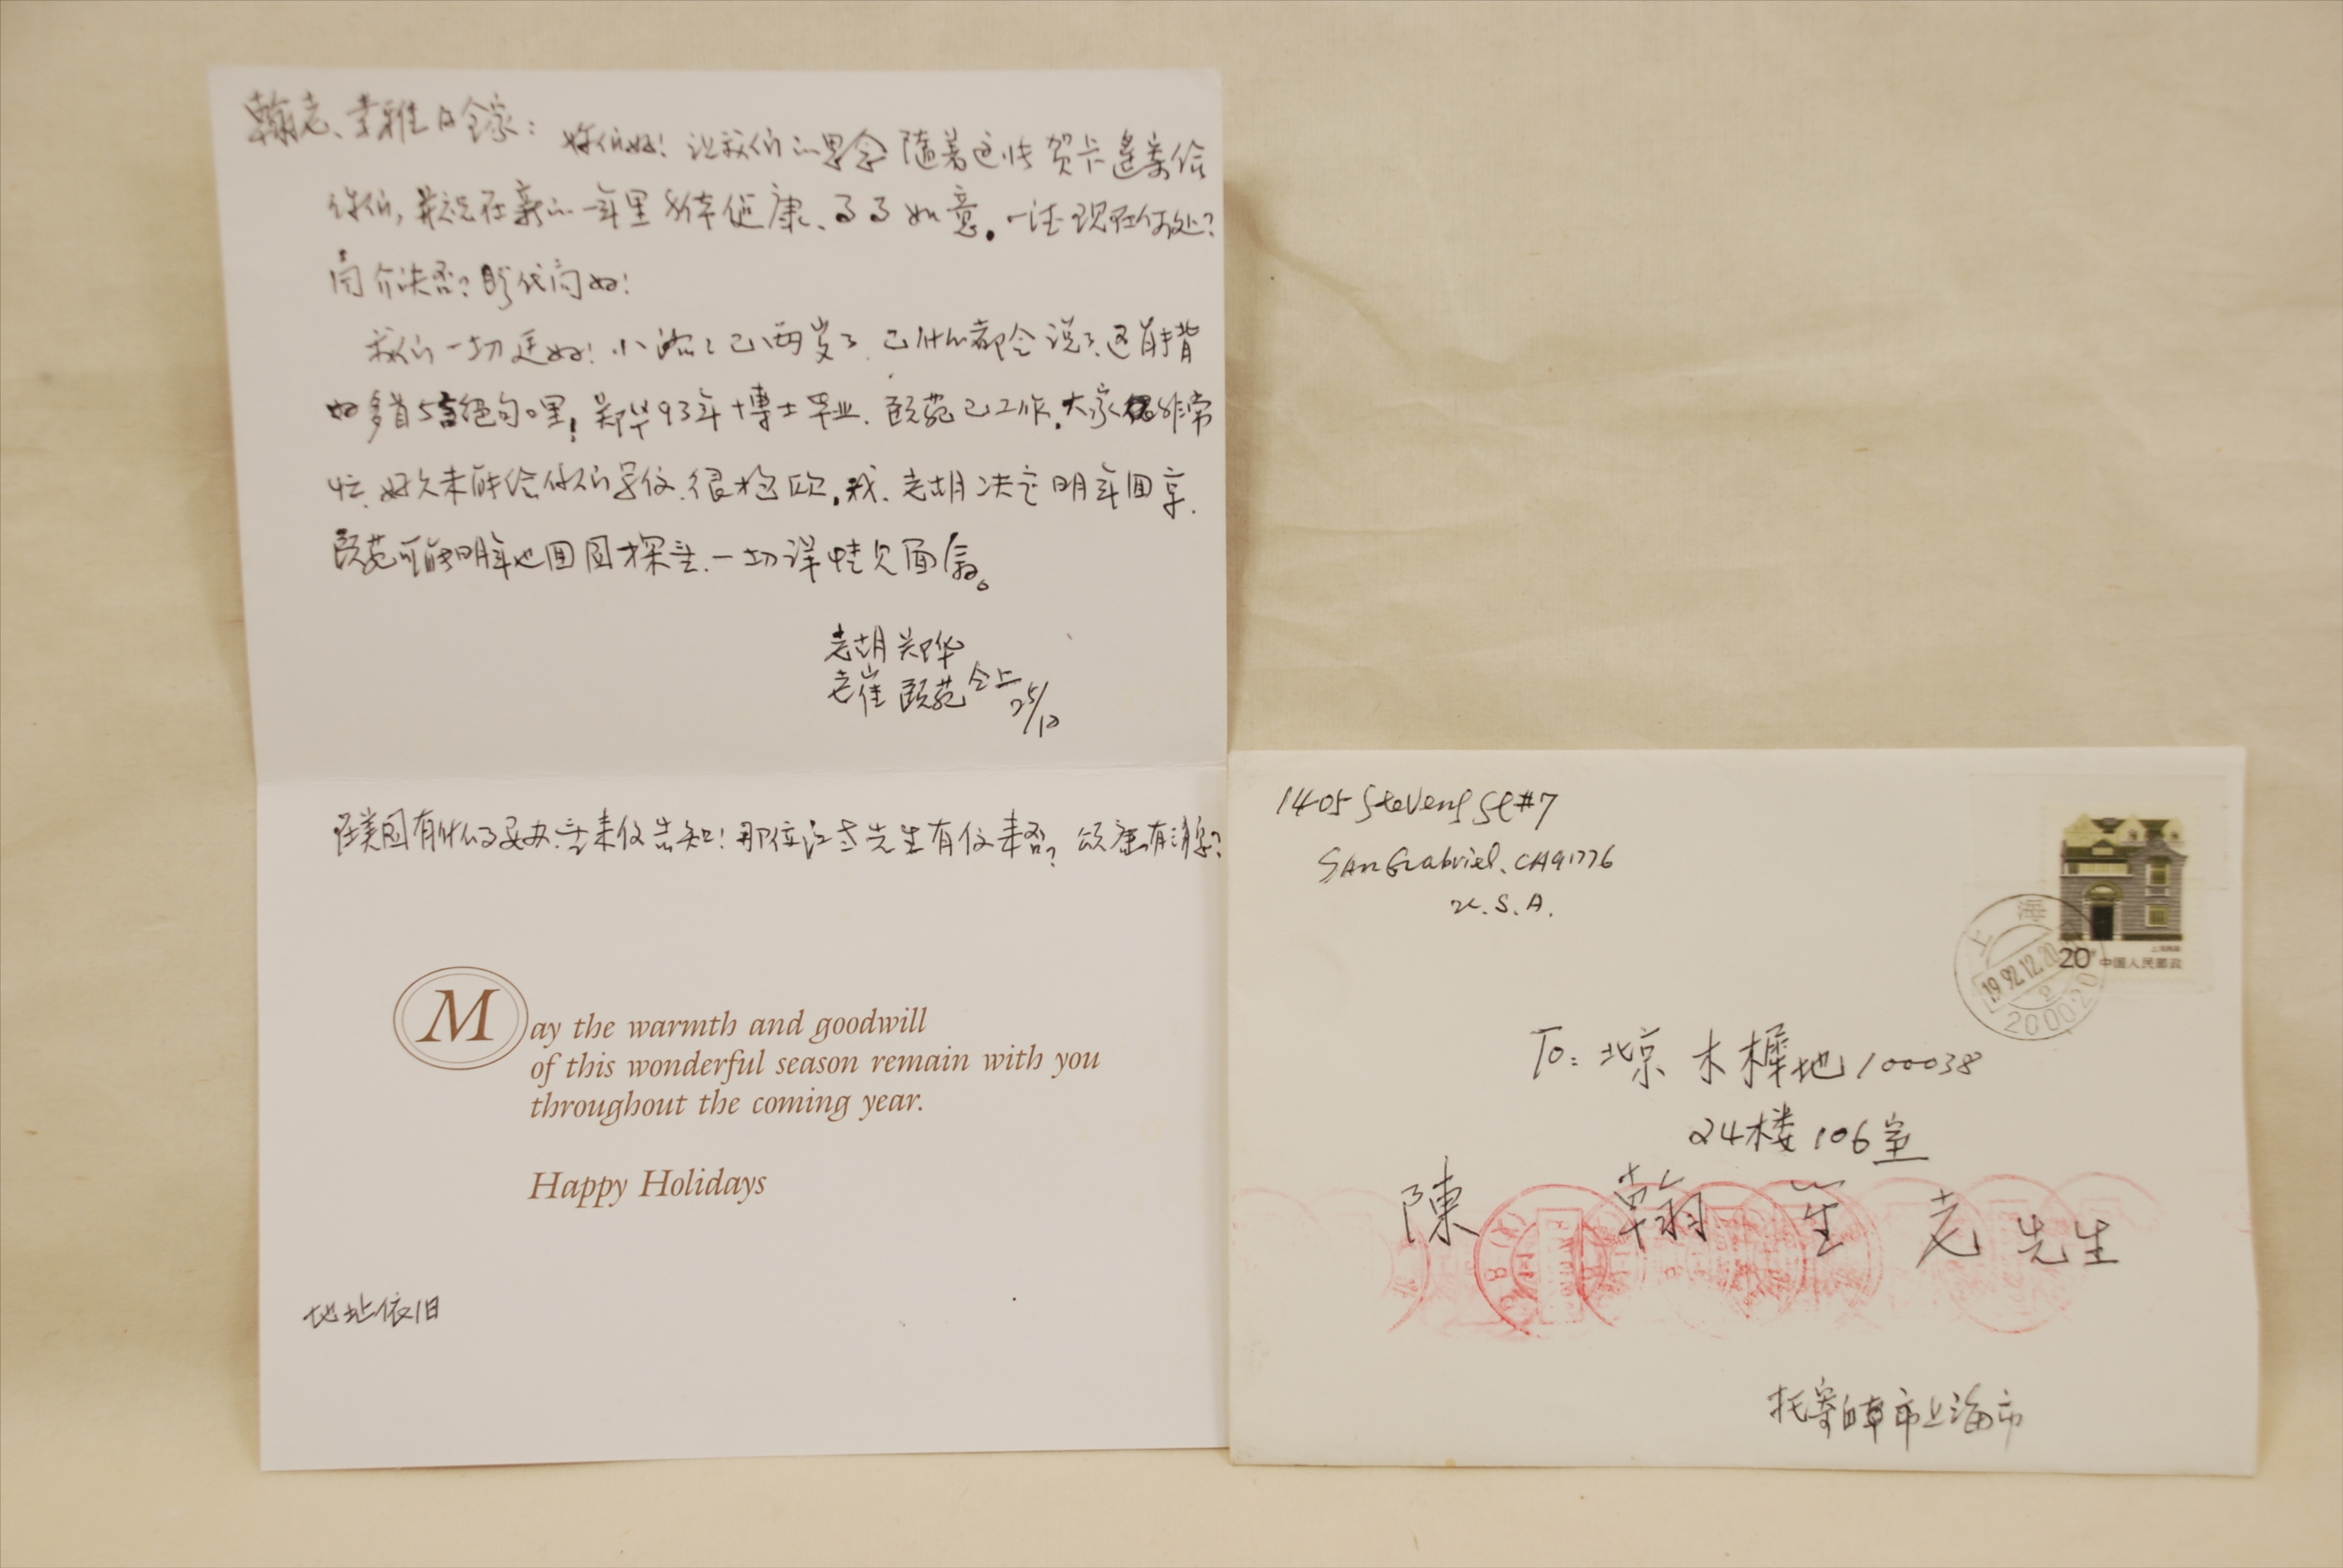 翰老、
全家: 你们好! 让我们的思念随着这张贺卡遥寄给
你们, 并祝在新的一年里身体健康、事事如意。 现在何处?
否? 代问好!
我们一切还好! 小 已两岁了. 已什么都会说了, 还能背
好多首5言绝句哩! 郑华93年博士毕业. 颐苑已工作. 大家都非常
忙, 好久未能给你们写信. 很抱歉. 我、老胡决定明年回京.
颐苑可能明年也回国探亲. 一切详情见面叙。
老胡 郑华
老崔 颐苑 仝上
25/12
在美国有什么事要办, 请来信告知! 那位 先生有信来否? 有消息?
May the warmth and goodwill
of this wonderful season remain with you
throughout the coming year.
Happy Holidays
地址依旧
1405 Stevens St #7
San Gabriel, CA 91776
U.S.A.
上海
1992.12.2
200020
上海民居
20分 中国人民邮政
To: 北京 木樨地 100038
24楼 106室
陳 翰 笙 老 先生
上海市